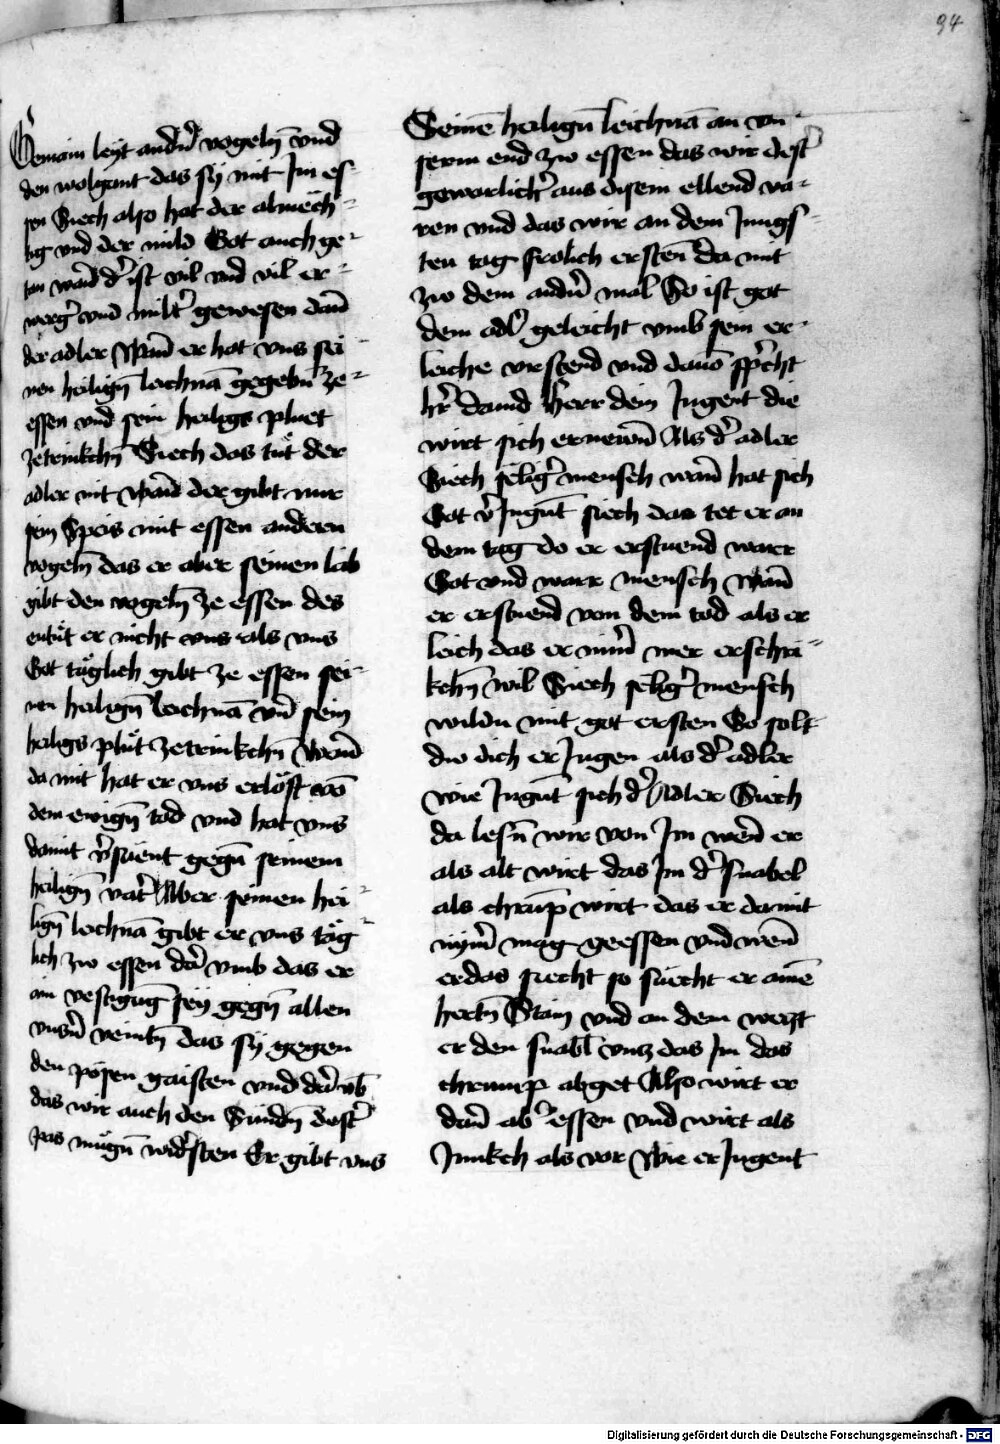 94
Gemain leyt andn̄ vogeln̄ vnd
den wolgint das sy mit Im es-
sen Siech also hat der almech-
tig vnd der mild Got auch ge-
tan wan̄ d' ist vil vnd vil er-
werg' vnd milt' gewesen dan̄
der adler Wan̄ er hat vns sei-
nen heilign̄ leichnā gegebn̄ ze-
essen vnd sein heiligs pluet
zetrinkchn̄ Siech das tut der
adler nit Wan̄ der gibt nur
sein Speis mit essen anderen
vogeln̄ das er aber seinen laib
gibt den vogeln̄ ze essen des
entuͤt er nicht vns als vns
Got taͤglich gibt ze essen sei-
nen heilign̄ leichnā vn̄ sein
heiligs pluͤt zetrinkchn̄ Wan̄
da mit hat er vns erloͤst vō
dem ewign̄ tod vnd hat vns
damit v'suent gegn̄ seinem
heilign̄ vat' Aber seinen hei-
lign̄ leichnā gibt er vns taͤg-
lich zw essen dar vmb das er
ain vestigūg sey gegn̄ allen
vnsn̄ veintn̄ das sy gegen
den poͤsen gaisten vnd dar vb̄
das wir auch den Sundn̄ dest'
pas muͤgn̄ wid'sten Er gibt vns
Seinē heilign̄ leichnā an vn-
serm end zw essen das wir dest'
gewarlich' aus disem ellend va-
ren vnd das wir an dem Jungs-
ten tag frolich ersten̄ da mit
zw dem andn̄ mal So ist got
dem adl' geleicht vmb sein er-
leiche vrstend vnd dauō sp'cht
h'r dauid herr dein Jugent die
wirt sich ernewn̄ Als d' adler
Siech selig' mensch wan̄ hat sich
Got v'Jngūt siech das tet er an
dem tag do er erstuend warr
Got vnd warr mensch Wan̄
er erstuend von dem tod als er
leich das er nim̄' mer erschri-
kchn̄ wil Siech selig' mensch
wildu mit got ersten So solt
dw dich er Jugen als d' adler
wie Jngūt sich d' Adler Siech
da lesn̄ wir von Im wen̄ er
als alt wirt das Im d' snabel
als chrūp wirt das er damit
nym̄' mag geessen vnd wen̄
er das siecht so suecht er ainē
hertn̄ Stain vnd an dem wetzt
er den snabl vntz das Im das
chrump abget Also wirt er
dan̄ ab' essen vnd wirt als
Junkch als vor Wie er Jugent
Digitalisierung gefördert durch die Deutsche Forschungsgemeinschaft - DFG